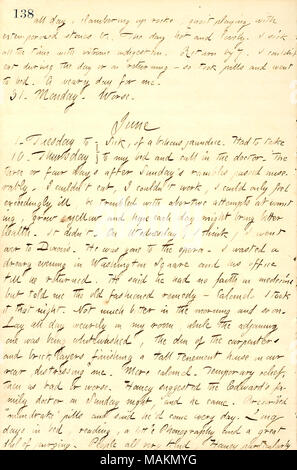 138
all day, clambering up rocks, quoit playing with
extemporized stones &c. The day hot and lovely. I sick
all the time with extreme indigestion. Return by 7. I couldn't
eat during the day or on returning — so took pills and went
to bed. A weary day for me.
31. Monday. Worse.
June
1. Tuesday to Sick, of a bilious jaundice. Had to take
10. Thursday to my bed and call in the doctor. For
three or four days after Sunday's ramble passed miser-
ably. I couldn't eat, I couldn't work, I could only feel
exceedingly ill, be troubled with abortive attempts at vomit-
ing, grow yellow and hope each day might bring better
health. It didn't. On Wednesday, I think, I went
over to Davis. He was gone to the opera. I wasted a
dreary evening in Washington Square and his office
till he returned. He said he had no faith in medicine
but told me the old fashioned remedy — Calomel. I took
it that night. Not much better in the morning and so on.
Lay all day wearily in my room while the adjoining
one was being whitewashed, the din of the carpenters
and bricklayers finishing a tall tenement house in our
rear distressing me. More calomel. Temporary relief,
then as bad or worse. Haney suggested the Edwards' fa-
mily doctor on Sunday night, and he came. Prescribed
pills and said he'd come every day. Long
days in bed, reading a little Pornography and a great
deal of
People all very kind. Haney particularly